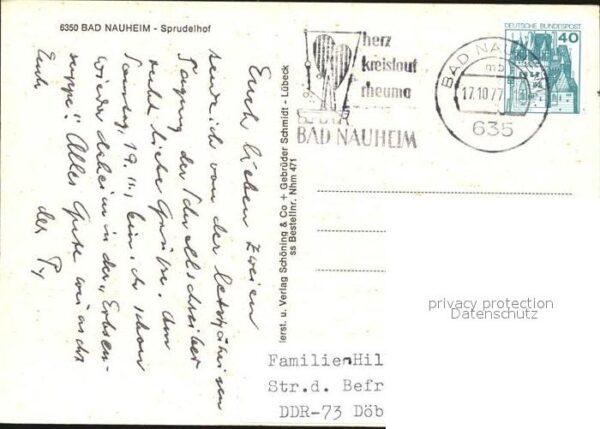 6350 BAD NAUHEIM - Sprudelhof
Euch lieben Zweien
sende ich von der
Tagung der
recht liebe Grüße. Am
Samstag, 19.11., bin ich schon
wieder daheim in der „Erbsen-
suppe“! Alles Gute wünscht
Euch der
ierst. u. Verlag Schöning & Co + Gebrüder Schmidt - Lübeck
ss Bestellnr. Nhm 471
herz
kreislauf
rheuma
BAD NAUHEIM
BAD NAU
mb
17.10.77
635
DEUTSCHE BUNDESPOST
40
privacy protection
Datenschutz
Familie Hil
Str.d. Befr
DDR-73 Döb